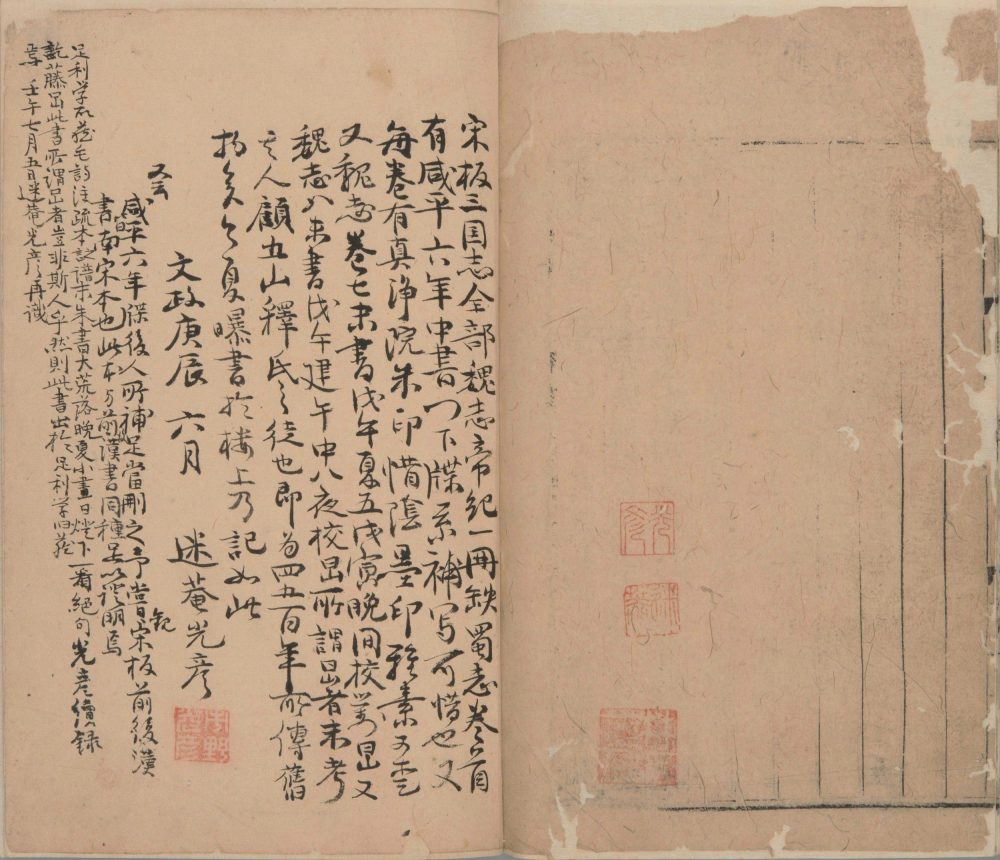 宋板三国志全部魏志帝紀一冊缺蜀志卷首
有咸平六年中書門下牒系補写可惜也又
每卷有真淨院朱印惜陰墨印雅素可
又魏志卷七末書戊午夏五戊寅晚間校冩昷又
魏志八末書戊午建午中八夜校昷所謂昷者未考
其人顧五山釋氏之徒也即為四五百年所傳舊
物矣今夏曝書於楼上乃記如此
文政庚辰六月 迷菴光彦
又云
咸平六年牒後人所補足當刪之予嘗観宋板前後漢
書皆南宋本也此本与前漢書同種足以證明焉
足利学所藏毛詩注疏本記譜末朱書大荒落晚夏小盡日燈下一看絕句光彦續録
訖藤昷此書所謂昷者豈非斯人乎然則此書出於足利学旧藏
焉 壬午七月五日迷菴光彦再識